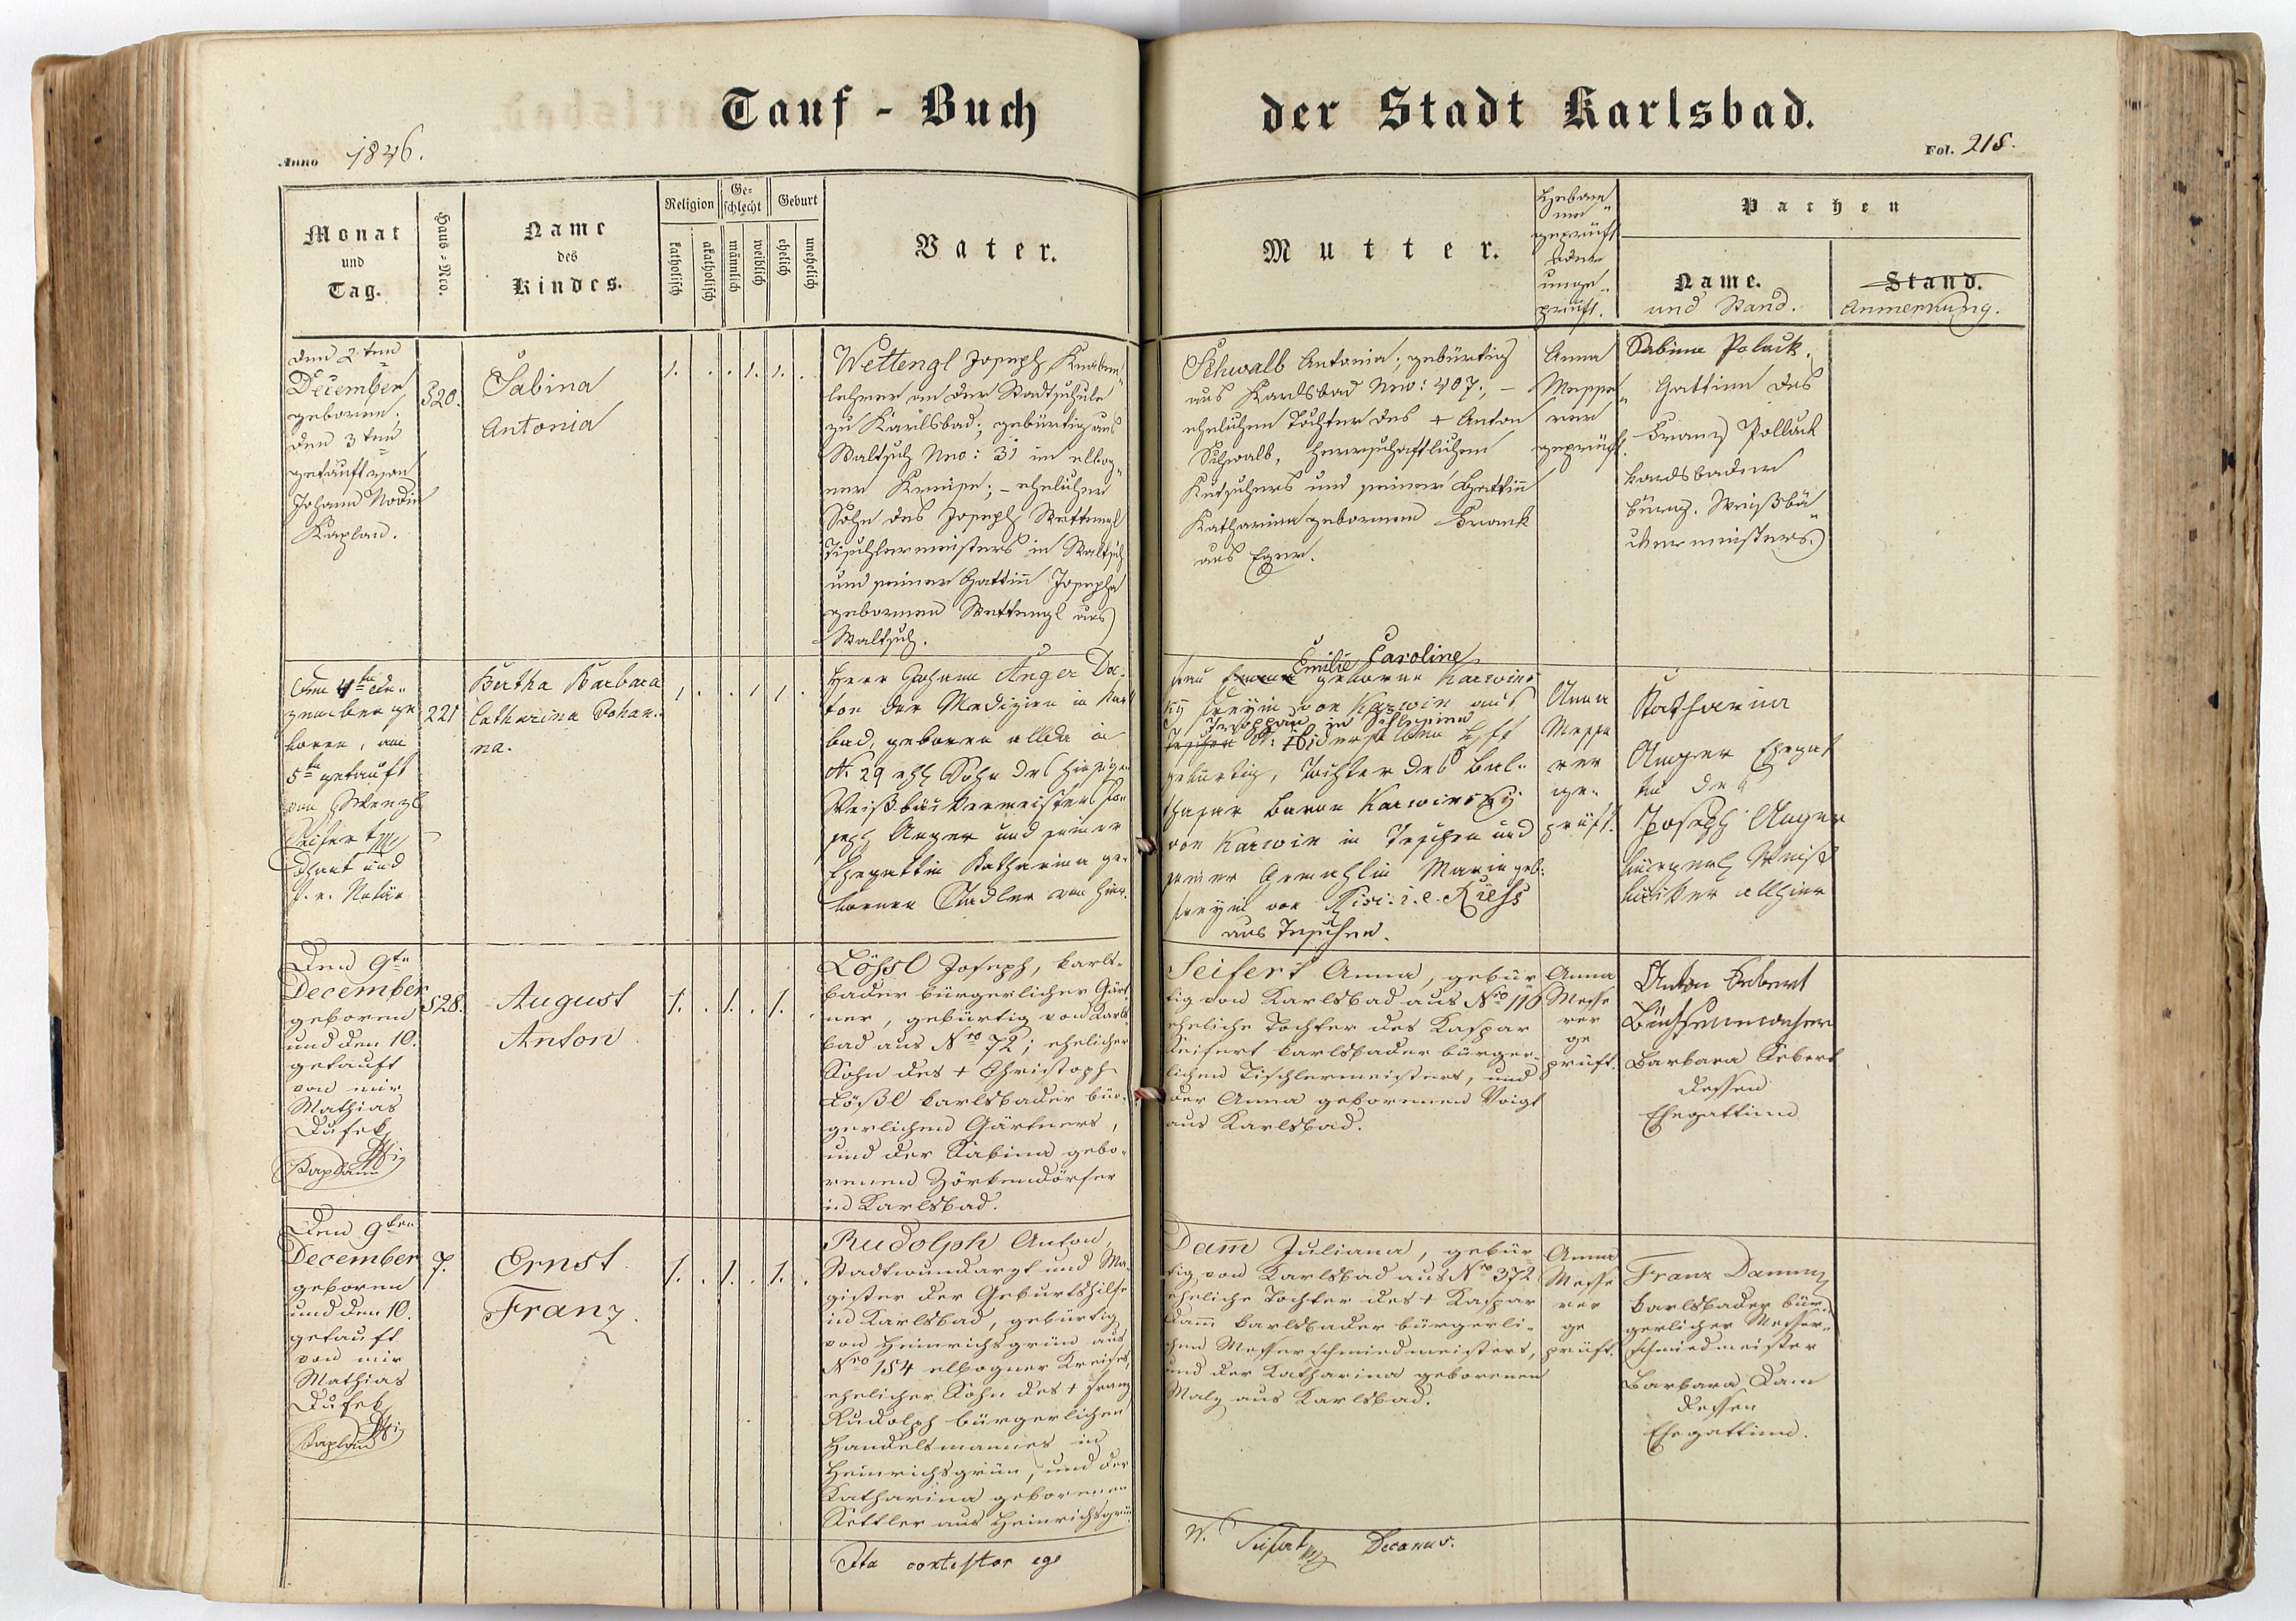 Tauf - Buch
der Stadt Karlsbad.
Anno 1846.
Fol. 218.
Monat
und
Tag.
Haus-Nro.
Name
des
Kindes.
Religion
katholisch
akatholisch
Ge-
schlecht
männlich
weiblich
Geburt
ehelich
unehelich
Vater.
Mutter.
Hebam-
me
geprüft
oder
unge-
prüft.
Pathen
Name.
und Stand.
Stand.
Anmerkung.
Den 2ten
December
geboren.
Den 3ten
getauft von
Johann
Kaplan.
320.
Sabina
Antonia
1. . . 1. 1. .
Wettengl Joseph Knaben-
lehrer an der Stadtschule
zu Karlsbad; gebürtig aus
Waltsch Nro: 31 im elbog-
ner Kreise; – ehelicher
Sohn des Joseph Wettengl
Tischlermeisters in Waltsch
und seiner Gattin Josepha
gebornen Wettengl aus
Waltsch.
Schwalb Antonia; gebürtig
aus Karlsbad Nro: 407; –
ehelichen Tochter des + Anton
Schwalb, herrschaftlichen
Kutschers und seiner Gattin
Katharina gebornen Frank
aus Eger.
Anna
Messe-
rer
geprüft.
Sabina Polack,
Gattinn des
Franz Pollack
karlsbader
bürg. Weißbä-
ckermeisters.
Am 4ten De-
zember ge
boren, am
5ten getauft
von Wenzl
Seifert
Dechant und
b. v. Notär
221
Bertha Barbara
Catharina Johan-
na.
1 . . 1 1 .
Herr Johann Anger Doc-
tor der Medizien in Karls
bad, geboren allda in
N. 29 ehl Sohn des hiesigen
Weißbäckermeisters Jo-
seph Anger und seiner
Ehegattin Katharina ge-
bornen Stadler von hier.
Emilie Caroline
Frau geborne Karwins
ky Freyin von Karwin aus
Troppau in Schlesien
gebürtig, Tochter des Bal-
thasar Baron Karwinsky
von Karwin in Teschen und
seiner Gemahlin Maria geb:
Freyin von i.e. Rüess
aus Teschen.
Anna
Messe
rer
ge-
prüft.
Katharina
Anger Ehegat
tin des
Joseph Anger
bürgerl Weiß
bäcker allhier
Den 9ten
December
geboren
und den 10.
getauft
von mir
Mathias
Dusek
Kaplan
528.
August
Anton
1. . 1. . 1. .
Lössl Joseph, karls-
bader bürgerlicher Gärt
ner, gebürtig von Karls
bad aus Nro 72; ehelicher
Sohn des + Christoph
Lößl karlsbader bür-
gerlichen Gärtners,
und der Sabina gebo-
renen Zörkendörfer
in Karlsbad.
Seifert Anna, gebür
tig von Karlsbad aus Nro 110
eheliche Tochter des Kaspar
Seifert karlsbader bürger-
lichen Tischlermeisters, und
der Anna geborenen Voigt
aus Karlsbad.
Anna
Messe
rer
ge
prüft.
Anton
Büchsenmacher
Barbara
dessen
Ehegattinn
Den 9ten
December
geboren
und den 10.
getauft
von mir
Mathias
Dusek
Kaplan
7.
Ernst
Franz.
1. . 1. . 1. .
Rudolph Anton,
Stadtwundarzt und Ma
gister der Geburtshilfe
in Karlsbad, gebürtig
von Heinrichsgrün aus
Nro 154 elbogner Kreises,
ehelicher Sohn des + Franz
Rudolph bürgerlichen
Handelsmannes in
Heinrichsgrün, und der
Katharina geborenen
Settler aus Heinrichsgrün.
Dam̅ Juliana, gebür
tig von Karlsbad aus Nro 372
eheliche Tochter des + Kaspar
Dam̅ karlsbader bürgerli-
chen Messerschmiedmeisters,
und der Katharina geborenen
Malz aus Karlsbad.
Anna
Messe
rer
ge
prüft.
Franz Damm
karlsbader bür-
gerlicher Messer-
schmiedmeister
Barbara Dam
dessen
Ehegattinn.
Ita contestor ego
W. Seifert Decanus.